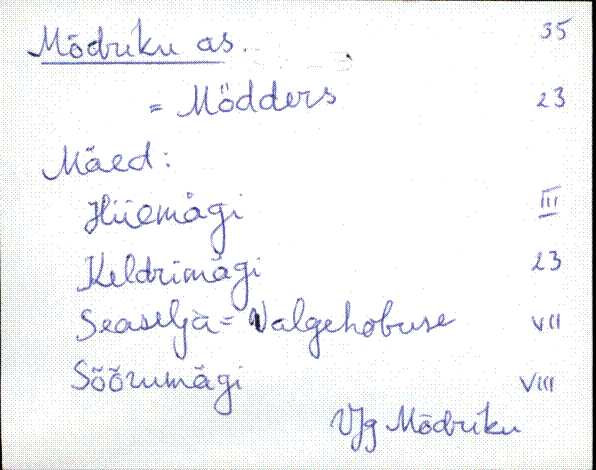 Mõdriku as. 35
= Mödders 23
Mäed:
Hiiemägi III
Keldrimägi 23
Seaselja = Valgehobuse VII
Sõõrumägi VIII
VJg Mõdriku